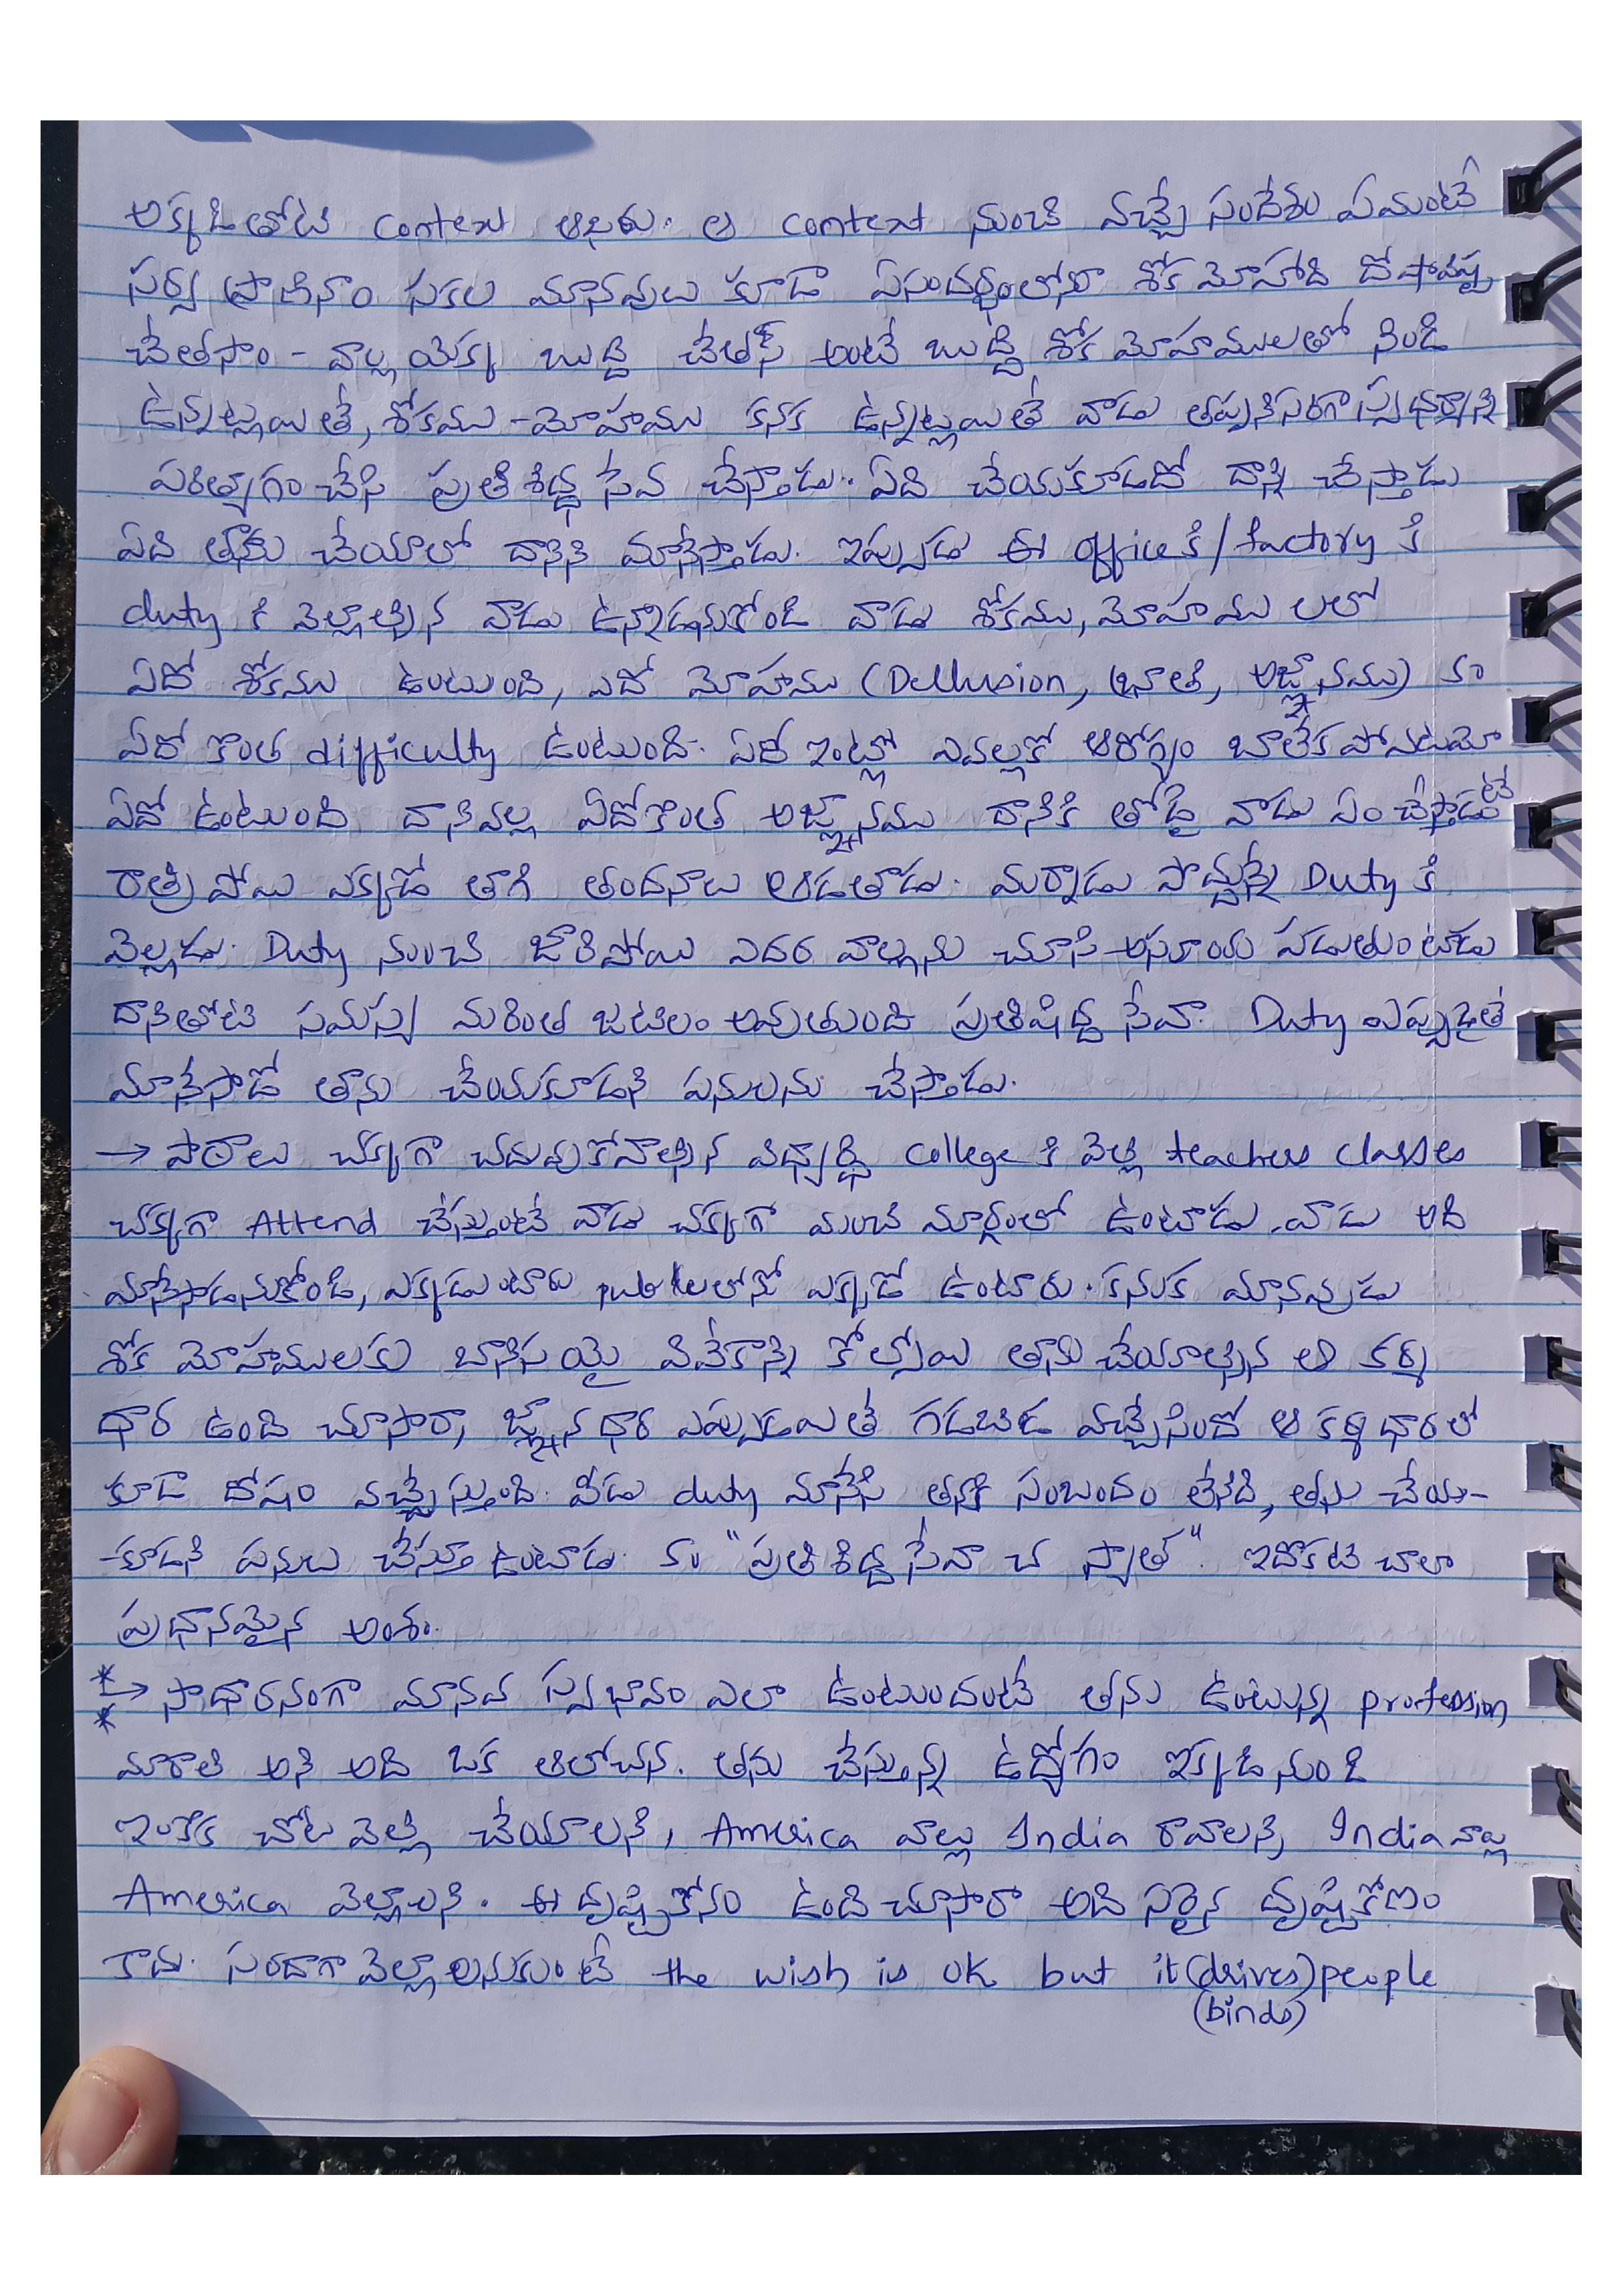 అక్కడితోటి context ఆఖరు. ఆ context నుంచి వచ్చే సందేశం ఏమంటే
సర్వ ప్రాణినాం సకల మానవులు కూడా ఏసందర్భంలోనూ శోక మోహాది దోషావిష్ట
చేతసాం - వాళ్ల యొక్క బుద్ధి చేతస్ అంటే బుద్ధి శోక మోహములతో నిండి
ఉన్నట్లయితే, శోకము - మోహము కనక ఉన్నట్లయితే వాడు తప్పనిసరిగా స్వధర్మాన్ని
పరిత్యాగం చేసి ప్రతిశిద్ధ సేవ చేస్తాడు. ఏది చేయకూడదో దాన్ని చేస్తాడు
ఏది తాను చేయాలో దానిని మానేస్తాడు. ఇప్పుడు ఈ office కి / factory కి
duty కి వెల్లాల్సిన వాడు ఉన్నాడనుకోండి వాడు శోకము, మోహము లలో
ఏదో శోకము ఉంటుంది, ఎదో మోహము (Dellusion, భ్రాంతి, అజ్ఞానము) కం
ఏదో కొంత difficulty ఉంటుంది. ఏదో ఇంట్లో ఎవల్లకో ఆరోగ్యం బాలేక పోవటమో
ఏదో ఉంటుంది దానివల్ల ఏదోకొంత అజ్ఞానము దానికి తోడై వాడు ఏం చేస్తాడంటే
రాత్రి పోయి ఎక్కడో తాగి తందనాలు ఆడతాడు. మర్నాడు పొద్దున్నే Duty కి
వెల్లడు. Duty నుంచి జారిపోయి ఎదర వాల్లను చూసి అసూయ పడుతుంటాడు
దానితోటి సమస్య మరింత జటిలం అవుతుంది ప్రతిషిద్ధ సేవా. Duty ఎప్పుడైతే
మానేసాడో తాను చేయకూడని పనులను చేస్తాడు.
→ పాఠాలు చక్కగా చదువుకోవాల్సిన విధ్యార్థి College కి వెల్లి teachers classes
చక్కగా Attend చేస్తుంటే వాడు చక్కగా మంచి మార్గంలో ఉంటాడు. వాడు అది
మానేసాడనుకోండి, ఎక్కడుంటారు pub లలోనో ఎక్కడో ఉంటారు. కనుక మానవుడు
శోక మోహములకు బానిస యై వివేకాన్ని కోల్పోయి తాను చేయాల్సిన ఆ కర్మ
ధార ఉంది చూసారా, జ్ఞాన ధార ఎప్పుడయితే గడబిడ వచ్చేసిందో ఆ కర్మ ధారలో
కూడా దోషం వచ్చేస్తుంది. వీడు duty మానేసి తనకి సంబందం లేనిది, తను చేయ-
-కూడని పనులు చేస్తూ ఉంటాడు. కం "ప్రతిశిద్ధ సేవా చ స్యాత్". ఇదొకటి చాలా
ప్రధానమైన అంశం.
*→ సాధారనంగా మానవ స్వభావం ఎలా ఉంటుందంటే తను ఉంటున్న profession
* మారాలి అని అది ఒక ఆలోచన. తను చేస్తున్న ఉద్యోగం ఇక్కడి నుండి
ఇంకొక చోట వెల్లి చేయాలని, America వాల్లు India రావాలని, India వాల్లు
America వెల్లాలని. ఈ దృష్టికోనం ఉంది చూసారా అది సరైన దృష్టికోణం
కాదు. సరదాగా వెల్లాలనుకుంటే the wish is ok but it (drives) people
(binds)